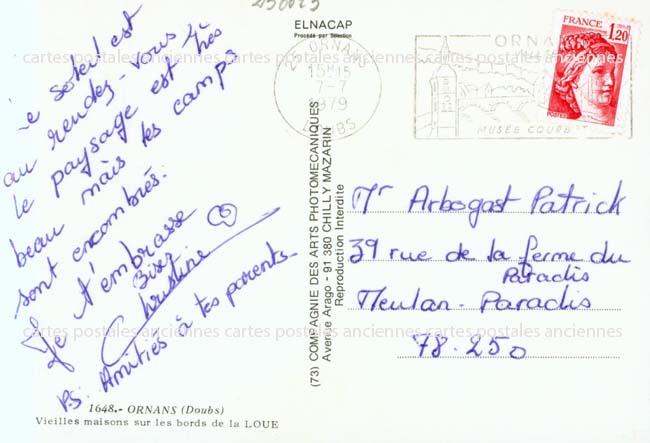 ELNACAP
Procédé par Sélection
25 ORNANS
15H15
7-7
1979
DOUBS
ORNANS
MUSÉE COURBET
FRANCE
1,20
POSTES
Le soleil est
au rendez-vous
le paysage est très
beau mais les camps
sont encombrés.
Je t'embrasse
Bises
Christine
PS: Amitiés à tes parents
(73) COMPAGNIE DES ARTS PHOTOMECANIQUES
Avenue Arago - 91 380 CHILLY MAZARIN
Reproduction Interdite
Mr Arbogast Patrick
39 rue de la ferme du
Paradis
Meulan-Paradis
78.250
1648.- ORNANS (Doubs)
Vieilles maisons sur les bords de la LOUE
cartes postales anciennes cartes postales anciennes cartes postales anciennes
cartes postales anciennes cartes postales anciennes cartes postales anciennes